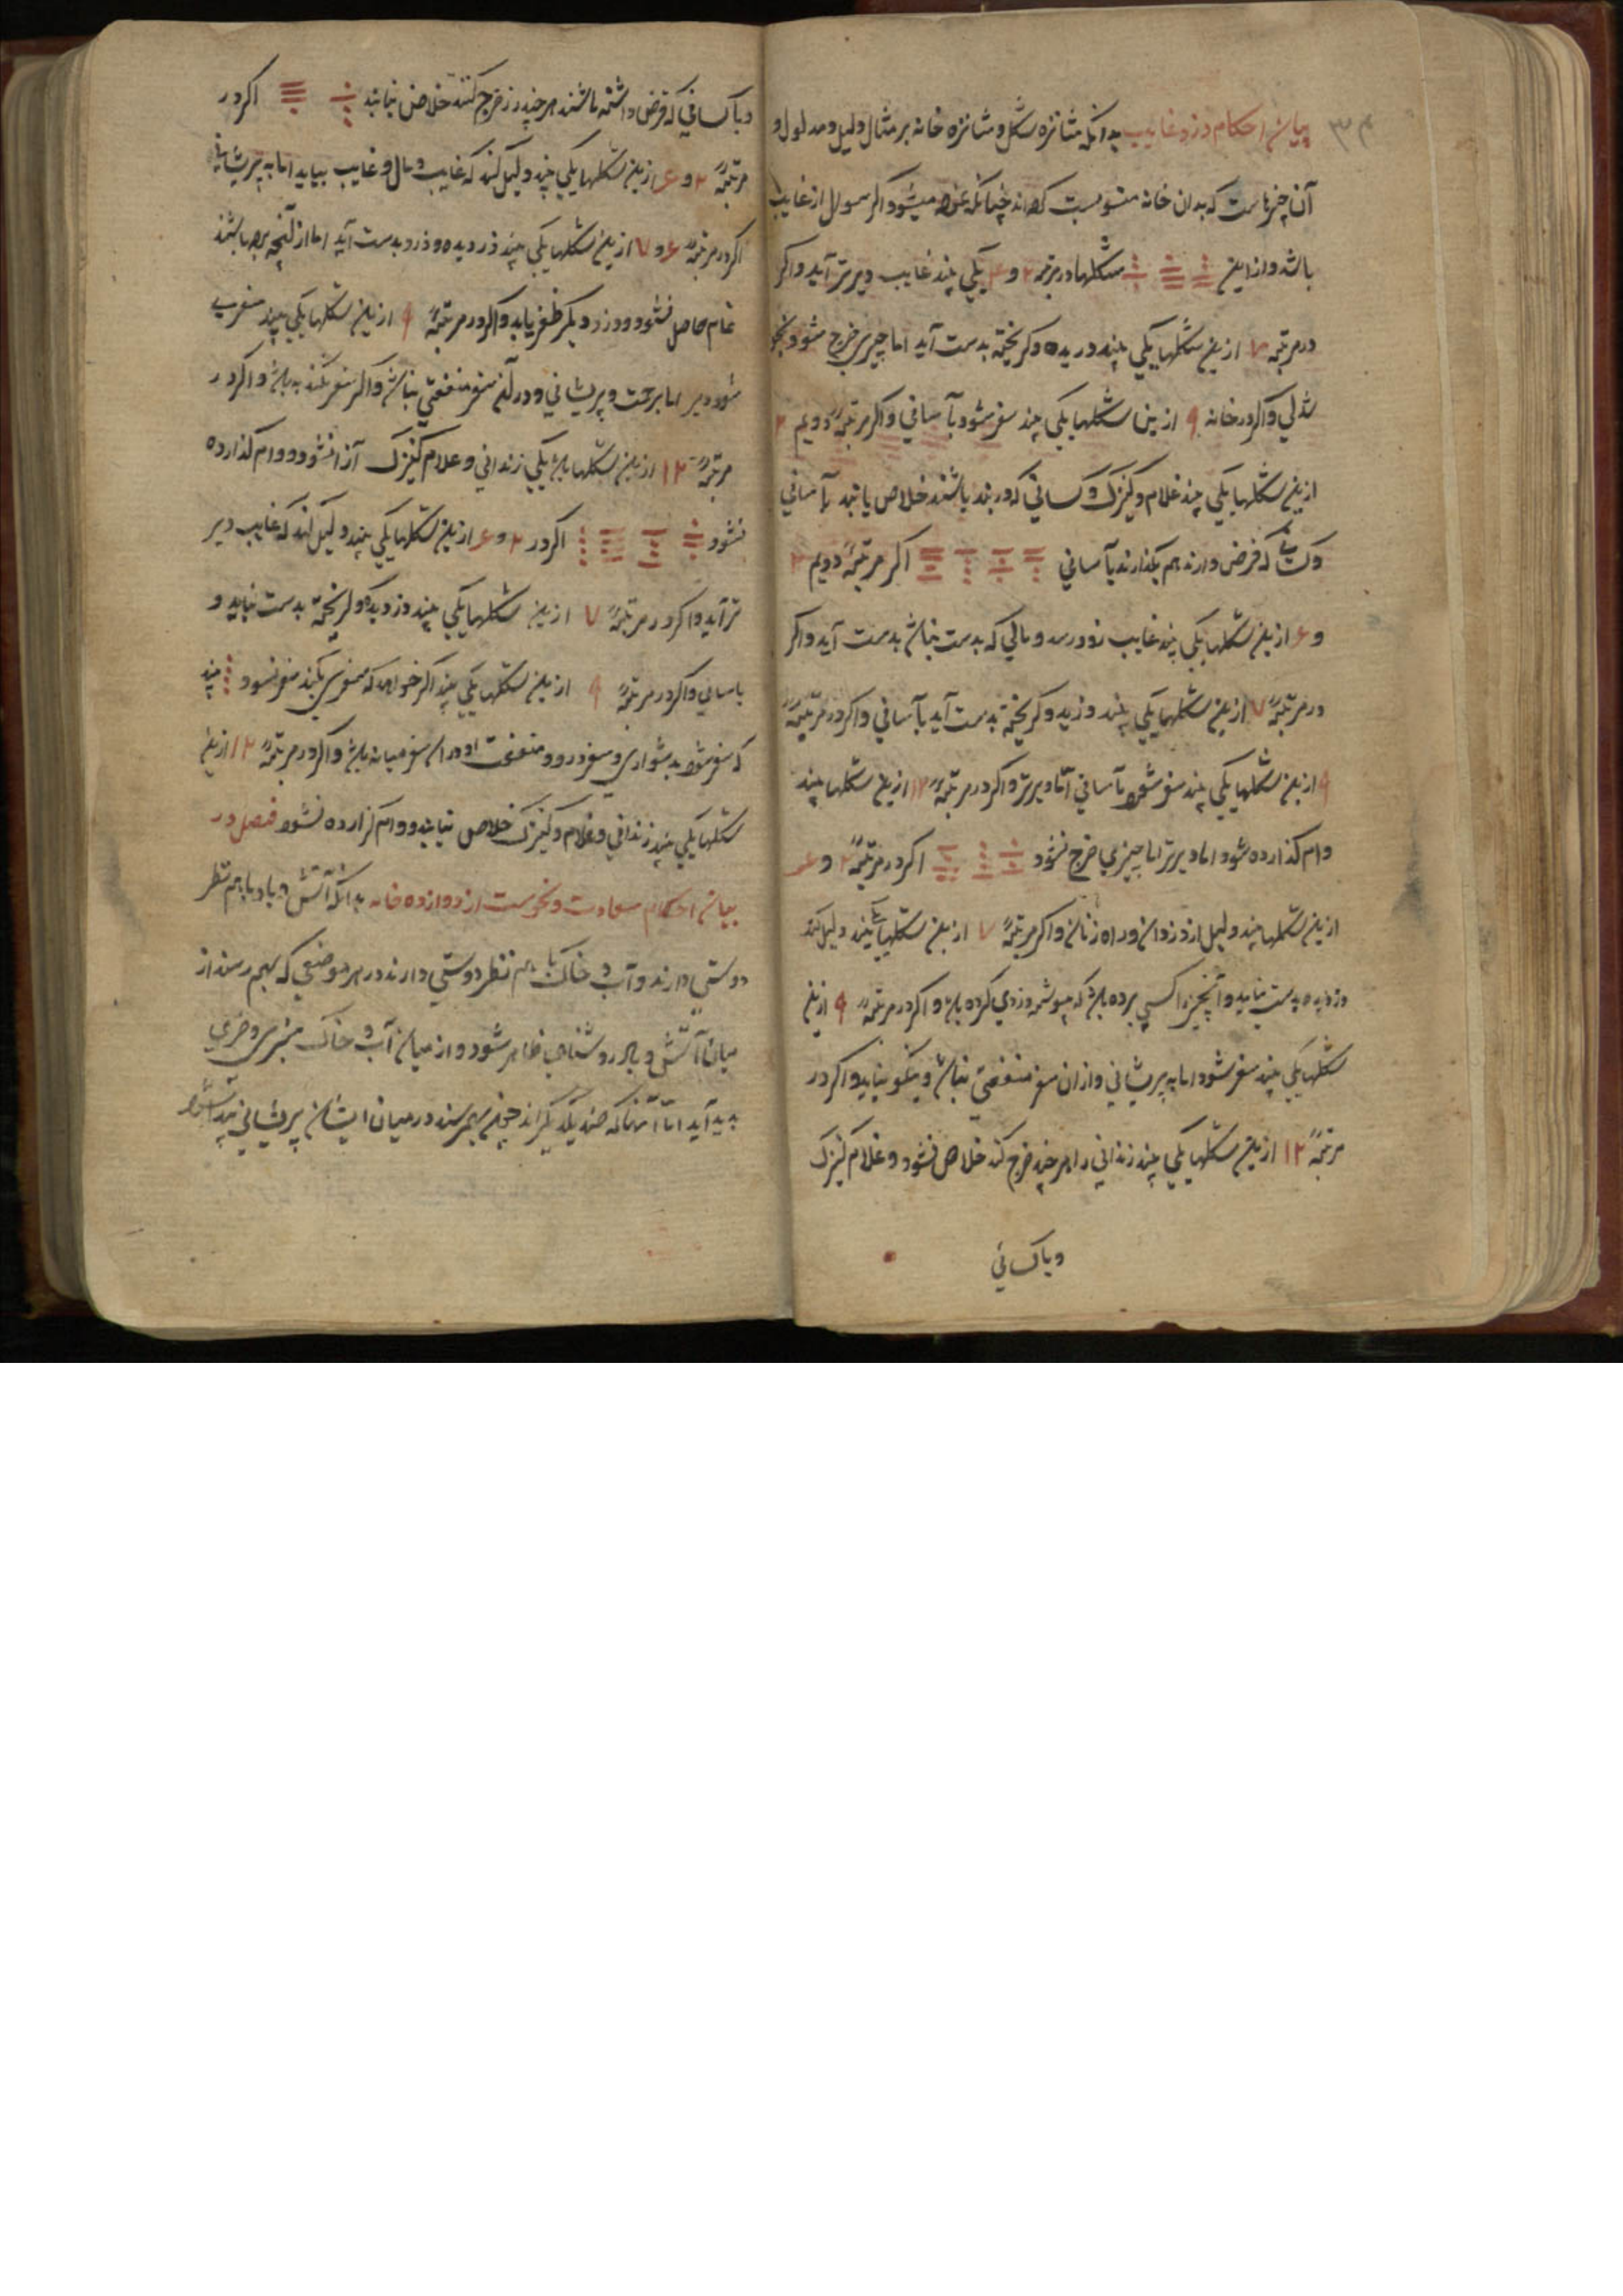 ۳۴
بیان احکام دزد و غایب بدانکه شانزه شکل و شانزه خانه بر مثال دلیل و مدلول و
آن چیزهاست که بدان خانه منسوبست کرده‌اند چنانکه نموده میشود و اگر سوال از غایب
باشد و از این شکلها در مرتبهٔ ۲ و ۴ یکی بیند غایب دیرتر آید و اگر
در مرتبهٔ ۷ ازین شکلها یکی بیند دزدیده و کریخته بدست آید اما چیزی خرج شود
و اگر در خانه ۹ ازین شکلها یکی بیند سفر شود بآسانی و اگر مرتبهٔ دویم ۲
ازین شکلها یکی بیند غلام و کنیزک و کسانی که در بند باشند خلاص یابند بآسانی
که قرض دارند هم بکذارند بآسانی اکر مرتبهٔ دویم ۲
و ۶ ازین شکلها یکی بیند غایب زود رسد و مالی که بدست نباشد بدست آید و اکر
در مرتبهٔ ۷ ازین شکلها یکی بیند دزدید و کریخته بدست آید بآسانی و اکر در مرتبهٔ
۹ ازین شکلها یکی بیند سفر شود بآسانی اما دیرتر و اکر در مرتبهٔ ۱۲ ازین شکلها بیند
وام کذارده شود اما دیرتر اما چیزی خرج شود اکر در مرتبهٔ ۲ و ۶
ازین شکلها بیند دلیل از دزدان و راه زنان و اکر مرتبهٔ ۷ ازین شکلها یکی بیند دلیل کند
دزدیده بدست نیاید و آنچیز را کسی برده باشد که همیشه دزدی کرده باشد و اکر در مرتبهٔ ۹ ازین
شکلها یکی بیند سفر شود اما به پریشانی و ازان سفر منفعتی نباشد و نیکو نیاید و اکر در
مرتبهٔ ۱۲ ازین شکلها یکی بیند زندانی را هر چند خرج کند خلاص نشود و غلام کنیزک
و با کسانی
و با کسانی که قرض داشته باشند هر چند زر خرج کنند خلاص نیابند اکر در
مرتبهٔ ۲ و ۶ ازین شکلها یکی بیند دلیل کند که غایب و مال و غایب بیاید اما به پریشانی
اکر در مرتبهٔ ۶ و ۷ ازین شکلها یکی بیند دزدیده و دزد بدست آید اما از آنچه برده باشند
تمام حاصل نشود و دزد دیکر ظفر یابد و اکر در مرتبهٔ ۹ ازین شکلها یکی بیند سفر
شود دیر اما بزحمت و پریشانی و در آن سفر منفعتی نباشد و اکر سفر نکند به باشد و اکر در
مرتبهٔ ۱۲ ازین شکلها باشد یکی زندانی و غلام کنیزک آزا نشود و وام کذارده
نشود اکر در ۲ و ۶ ازین شکلها یکی بیند دلیل کند که غایب دیر
تر آید و اکر در مرتبهٔ ۷ ازین شکلها یکی بیند دزدیده و کریخته بدست نیاید و
باسانی و اکر در مرتبهٔ ۹ ازین شکلها یکی بیند اکر خواهد که سفری بکند سفر نشود بیند
که سفر شود بدشواری و سفر دور و منفعت او دران سفر میانه باشد و اکر در مرتبهٔ ۱۲ ازین
شکلها یکی بیند زندانی و غلام و کنیزک خلاص نیابند و وام کزارده نشود فصل در
بیان احکام سعادت و نحوست از دوازده خانه بدانکه آتش و باد با هم نظر
دوستی دارند و آب و خاک با هم نظر دوستی دارند در هر موضعی که بهم رسند از
میان آتش و باد روشنایی ظاهر شود و از میان آب و خاک سبزی و خرمی
پدید آید اما آنها که ضد یکدیگراند چون بهم رسند در میان ایشان پریشانی